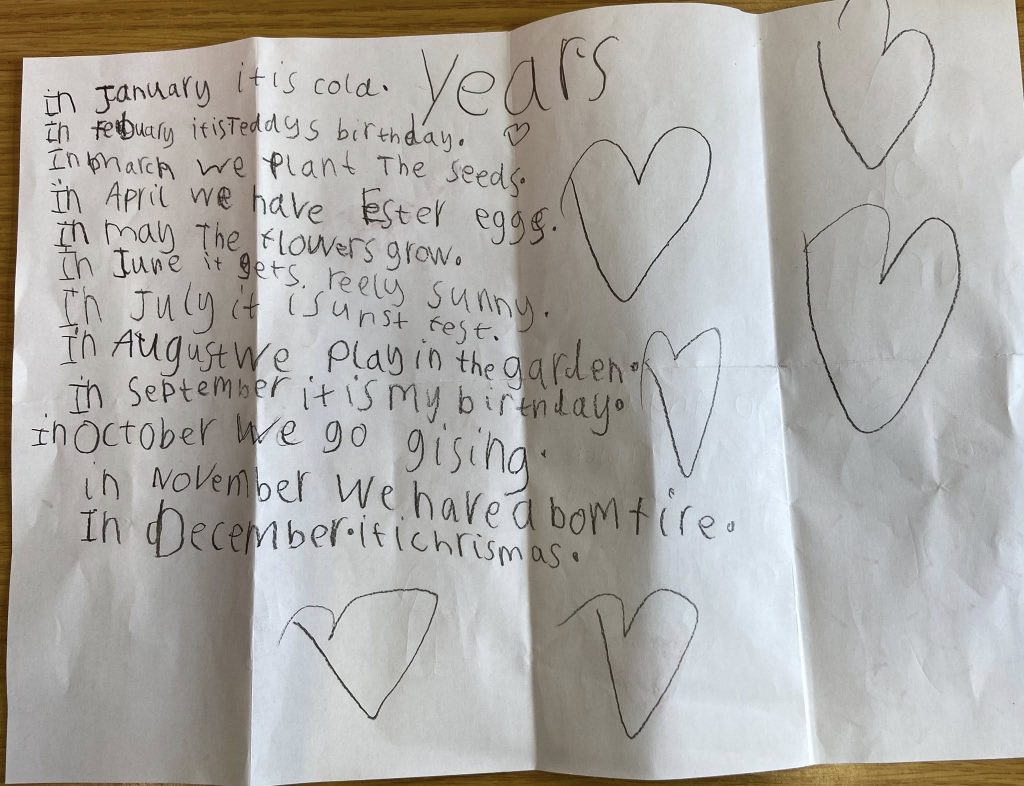 Years
in January it is cold.
In febuary it is Teddys birthday.
In march we plant The seeds.
In April we have Ester eggs.
In may The flowers grow.
In June it gets reely sunny.
In July it is unst fest.
In August we play in the garden.
In September it is my birthday.
in October we go gising.
in November we have a bomfire.
In December. it i chrismas.